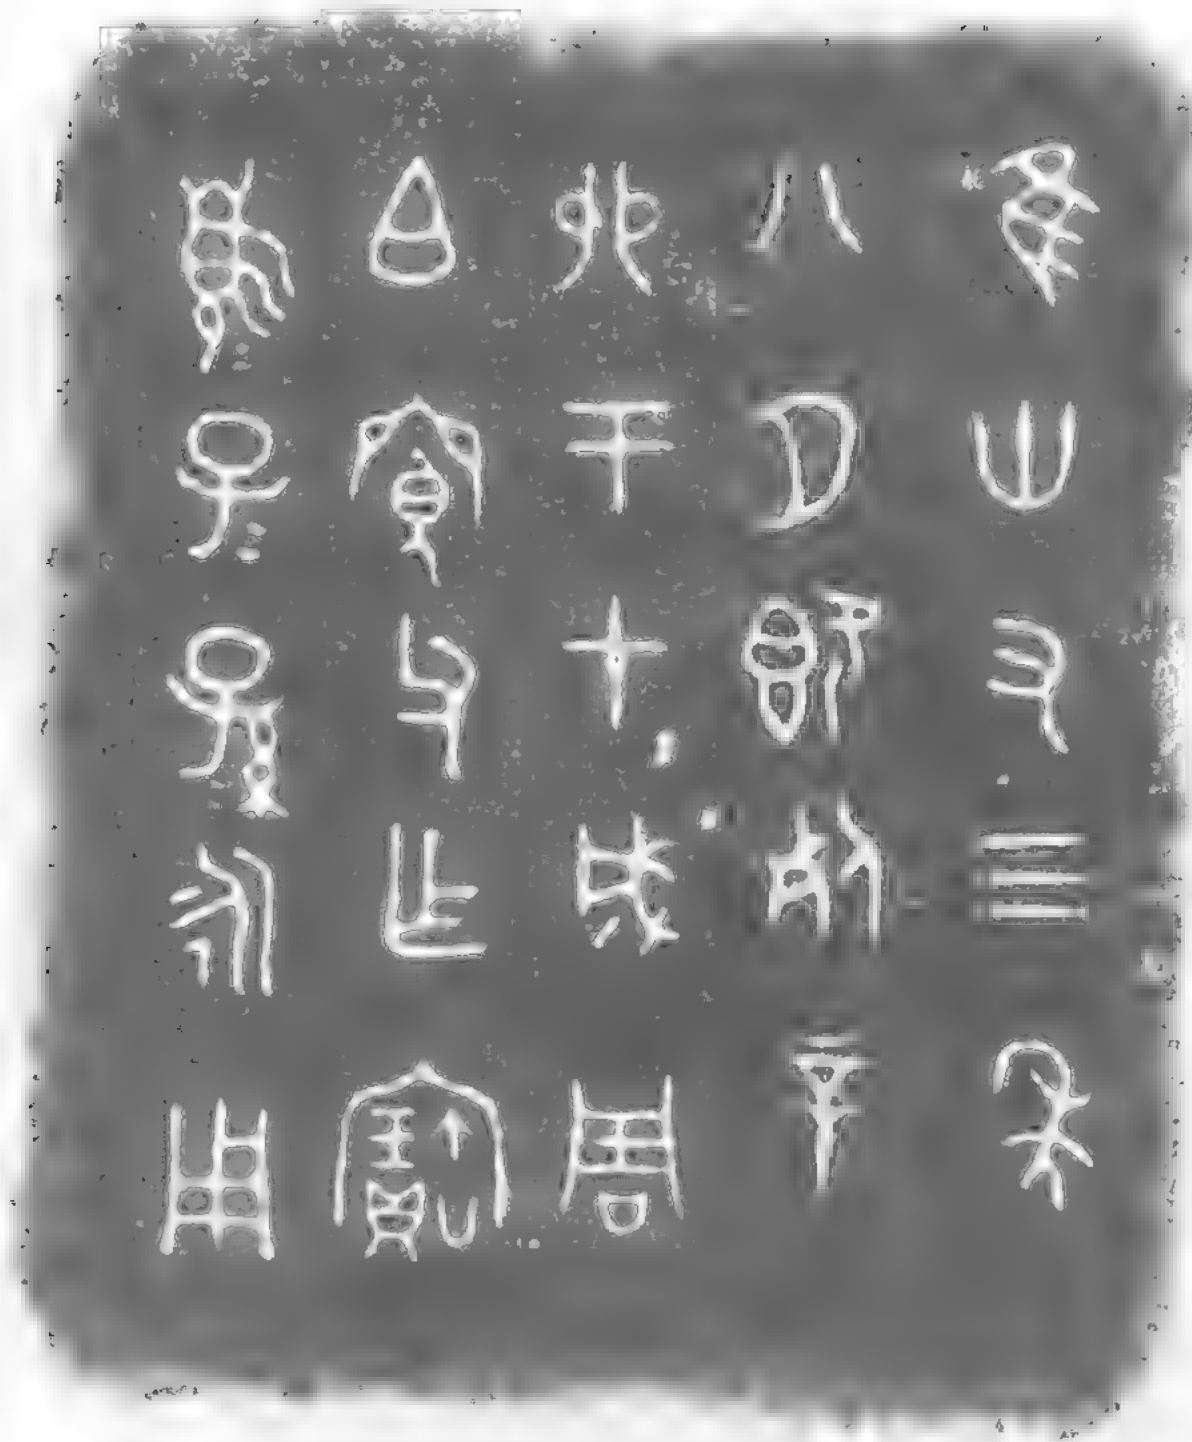 隹卅又三年
八月既死辛
卯王才成周
白寬父乍寶
須子=孫永用